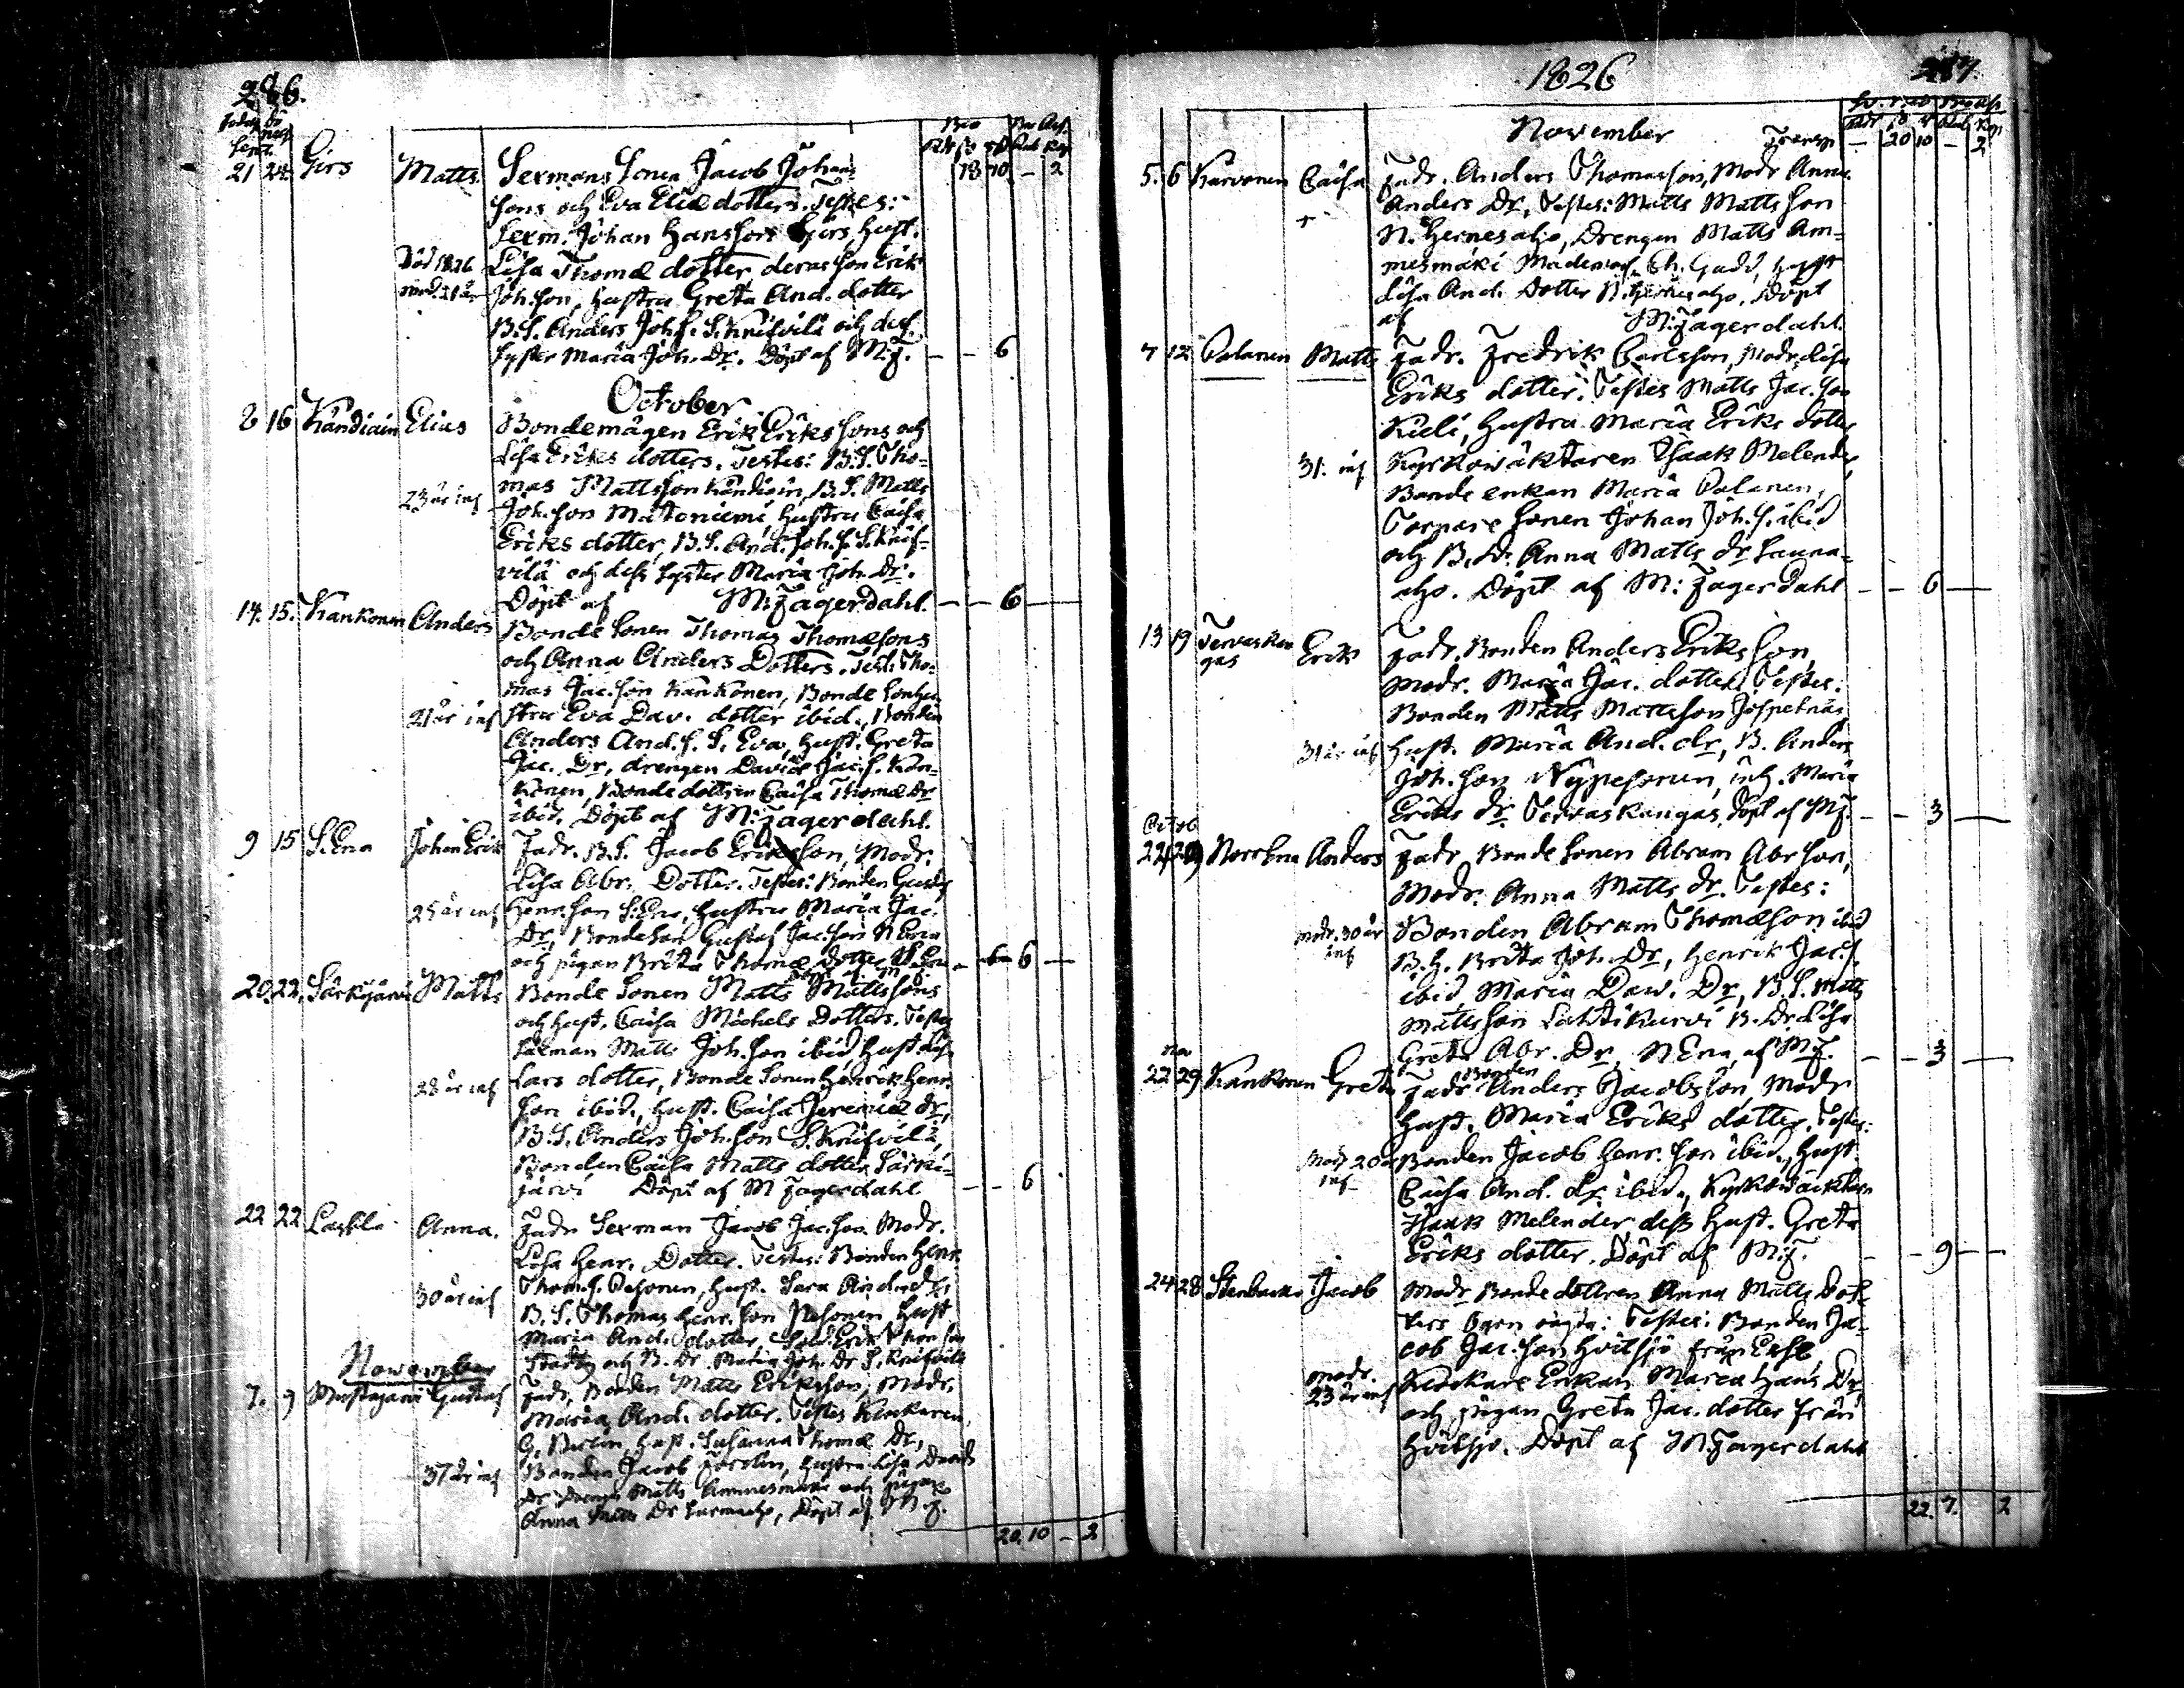 286.
Sept.
21 24 Girs Matts. Sexmans Sonen Jacob Johans 18 10 - 2
Sons och Eva Eliædotters. Testes:
Sexm. Johan Hansson Girs, Hust.
Död 1826 Lisa Thomæ dotter deras Son Erik
Joh. Son, hustru Greta And. dotter
B.S. Anders Joh. S. Knifvilä och dess
Syster Maria Joh. Dr. Döpt af M:F. - - 6
October
8 16 Kändiäin Elias Bondemågen Erik Eriks Sons och
Lisa Eriks dotters. Testes: B.S. Tho-
mas Mattsson Kändiäin, B.S. Matts
23 år inf Joh. Son Matoniemi, Hustru Caisa
Eriks dotter, B.S. And. Joh. S. S. Knif-
vilä och dess Syster Maria Joh. Dr.
Döpt af M: Fagerdahl. - - 6 -
14. 15. Kankonen Anders Bonde Sonen Thomas Thomæsons
och Anna Anders Dotters. Test: Tho-
mas Jac. Son Kankonen, Bonde Sonhu-
21 år inf stru Eva Dav. dotter ibid., Bonden
Anders And. S. S. Eva, Hust. Greta
Jac. Dr, drengen David Jac. S. Kan-
konen, Bonde dottren Caisa Thomæ Dr
ibid. Döpt af M: Fagerdahl.
9 15 S. Ena Johan Erik Fadr. B.S. Jacob Eriksson, Modr.
Lisa Abr. Dotter. Testes: Bonden Gustaf
25 år inf Henr. Son S. Ena, Hustru Maria Jac.
Dr, Bondeson Gustaf Jac. Son N Ena
och pigan Brita Thomæ Dotter - 6 -
20. 22. Särkijärvi Matts Bonde Sonen Matts Mattssons
och Hust. Caisa Michels Dotters. Testes
Matts Joh. Son ibid Hust Lisa
28 år inf Lars dotter, Bonde Sonen Henrik Henr.
Son ibid., Hust. Caisa Jeremiæ dr,
B.S. Anders Joh. Son S. Knifvilä,
Bonden Caisa Matts dotter Särki-
järvi Döpt af M Fagerdahl - - 6
22 22 Lassila Anna. Fadr Sexman Jacob Jac. Son. Modr.
Lisa Henr. Dotter. Testes: Bonden Henr.
30 år inf Thom. S. Pesonen, Hust. Sara And. dr,
B.S. Thomas Henr. Son Pesonen Hust
Maria And. dotter,
och B. Dr. Maria Joh. Dr S. Knifvilä
November
7. 9 Mustajärvi Gustaf Fadr. Bonden Matts Eriksson, Modr.
Maria And. dotter. Testes Klockaren
G. Hust. Susanna Thomæ Dr,
37 år inf Bonden Jacob Forslin, Hustru Lisa Davids
Dr Drengen Matts Ammesmäki och pigan
Anna Matts Dr Saunaho, Döpt af M.F.
20. 10 - 2
1826 287.
November Transp - 20 10 - 2
5. 6 Karvonen Caisa Fadr. Anders Thomasson, Modr Anna
+ Anders Dr, Testes: Matts Mattsson
N. Hernesaho, Drengen Matts Am-
mesmäki Ch. Gadd, Hust
Lisa And. Dotter N. Hernesaho, Döpt
af M: Fagerdahl.
7 12 Palanen Matts Fadr. Fredrik Carlsson, Modr, Lisa
Eriks dotter. Testes Matts Jac. Son
Kieli, Hustru Maria Eriks dotter
31. inf Kyrkowäktaren Isaak Melender,
Bonde enkan Maria Palanen,
Torpare Sonen Johan Joh. S. ibid
och B. Dr. Anna Matts dr Sauna-
aho. Döpt af M: Fagerdahl - - 6 -
13 19 Tervaskan
gas Erik Fadr. Bonden Anders Eriksson,
Modr. Maria Jac. dotter. Testes:
Bonden Matts Mattsson
31 år inf Hust. Maria And. dr, B. Anders
Joh. Son Nyppesonen, inh. Maria
Eriks dr Tervaskangas, Döpt af MF. - - 3 -
Octob
22 29 Norr Ena Anders Fadr Bonde Sonen Abram Abr Son,
Modr. Anna Matts dr. Testes:
modr. 30 år Bonden Abram Thomæson ibid
inf B.H. Brita Joh. Dr, Henrik Jac. S.
ibid Maria Daw. Dr, B.S. Matts
Mattsson Lahtikurvi B. Dr Lisa
Nov Greta Abr. Dr, N Ena, af M.F. - - 3 -
Bonden
22 29 Kankonen Greta Fadr Anders Jacobsson, Modr
Hust. Maria Eriks dotter. Testes:
Modr 20 år Bonden Jacob Henr. Son ibid., Hust.
inf Caisa And. dr ibid., Kyrkowäcktaren
Isaak Melender dess Hust. Greta
Eriks dotter. Döpt af M:F. - - 9 - -
24 28 Stenbacka Jacob Modr Bonde dottren Anna Matts Dot-
ters Testes: Bonden Ja-
cob Jac. Son Hvitsjö från
modr. Klockare Enkan Maria Hans Dr
23 år inf och pigan Greta Jac. dotter från
Hvitsjö. Döpt af M. Fagerdahl
22. 7. 2